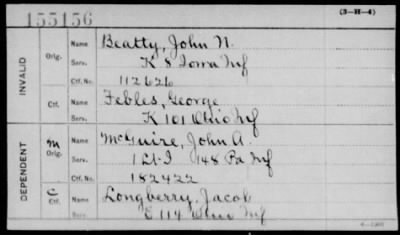 155156 (3-H-4)
INVALID
Orig. Name Beatty, John N.
Serv. K 8 Iowa Inf
Ctf. No. 112626
Ctf. Name Febles, George
Serv. K 101 Ohio Inf
DEPENDENT
M Orig. Name McGuire, John A.
Serv. 148 Pa Inf
Ctf. No. 182422
C Ctf. Name Longberry, Jacob
Serv. 114 Ohio Inf